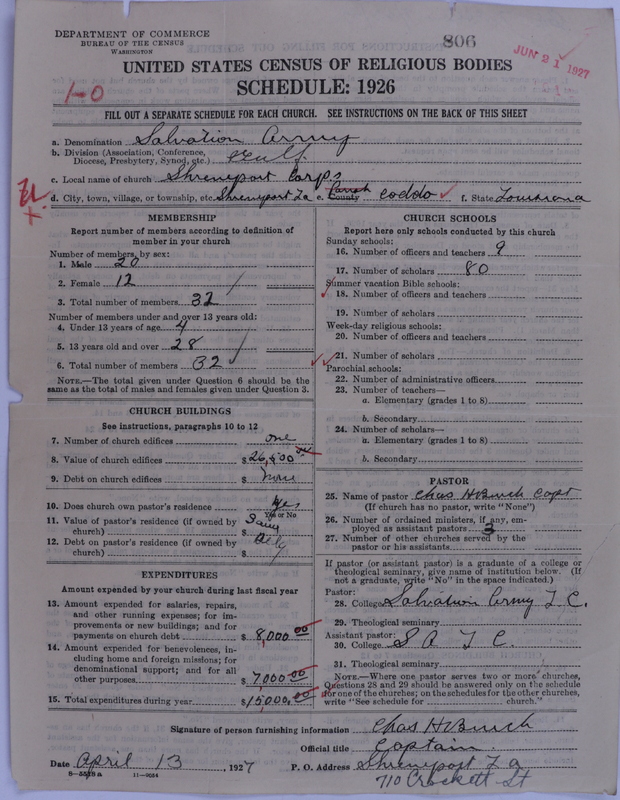 DEPARTMENT OF COMMERCE
BUREAU OF THE CENSUS
WASHINGTON
806
JUN 21 1927
UNITED STATES CENSUS OF RELIGIOUS BODIES
SCHEDULE: 1926
1-0
FILL OUT A SEPARATE SCHEDULE FOR EACH CHURCH. SEE INSTRUCTIONS ON THE BACK OF THIS SHEET
a. Denomination Salvation Army
b. Division (Association, Conference, Diocese, Presbytery, Synod, etc.) Gulf
c. Local name of church Shreveport Corps
d. City, town, village, or township, etc. Shreveport La e. County Parish Coddo f. State Louisiana
MEMBERSHIP
Report number of members according to definition of member in your church
Number of members, by sex:
1. Male 20
2. Female 12
3. Total number of members 32
Number of members under and over 13 years old:
4. Under 13 years of age 4
5. 13 years old and over 28
6. Total number of members 32
NOTE.—The total given under Question 6 should be the same as the total of males and females given under Question 3.
CHURCH BUILDINGS
See instructions, paragraphs 10 to 12
7. Number of church edifices one
8. Value of church edifices $
9. Debt on church edifices $ None
10. Does church own pastor's residence? Yes
Yes or No
11. Value of pastor's residence (if owned by church) $
12. Debt on pastor's residence (if owned by church) $
EXPENDITURES
Amount expended by your church during last fiscal year
13. Amount expended for salaries, repairs, and other running expenses; for improvements or new buildings; and for payments on church debt $ 8,000 00
14. Amount expended for benevolences, including home and foreign missions; for denominational support; and for all other purposes $ 7000 00
15. Total expenditures during year $ 15000,00
CHURCH SCHOOLS
Report here only schools conducted by this church
Sunday schools:
16. Number of officers and teachers 9
17. Number of scholars 80
Summer vacation Bible schools:
18. Number of officers and teachers
19. Number of scholars
Week-day religious schools:
20. Number of officers and teachers
21. Number of scholars
Parochial schools:
22. Number of administrative officers
23. Number of teachers—
a. Elementary (grades 1 to 8)
b. Secondary
24. Number of scholars—
a. Elementary (grades 1 to 8)
b. Secondary
PASTOR
25. Name of pastor Chas H Burch Capt
(If church has no pastor, write "None")
26. Number of ordained ministers, if any, employed as assistant pastors
27. Number of other churches served by the pastor or his assistants
If pastor (or assistant pastor) is a graduate of a college or theological seminary, give name of institution below. (If not a graduate, write "No" in the space indicated.)
Pastor:
28. College Salvation Army T. C.
29. Theological seminary
Assistant pastor:
30. College S A T C.
31. Theological seminary
NOTE.—Where one pastor serves two or more churches, Questions 28 and 29 should be answered only on the schedule for one of the churches; on the schedules for the other churches, write "See schedule for church."
Signature of person furnishing information Chas H Burch
Official title Captain
Date April 13, 1927 P. O. Address Shreveport La
710 Crockett St
11—9034